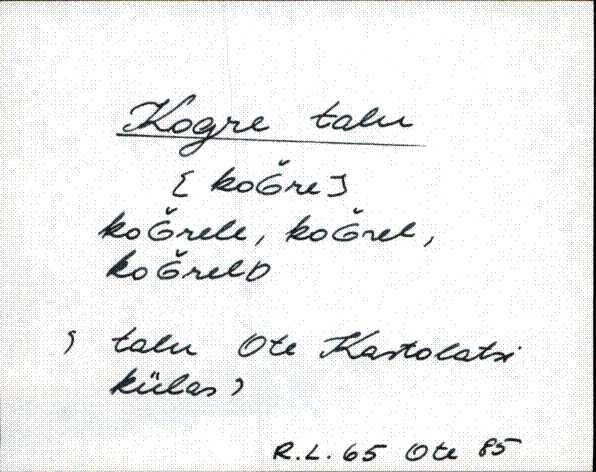 Kogre talu
[koǦre]
koǦrele, koǦrel,
koǦrelD
, talu Ote Kastolatsi
külas,
R.L. 65 Ote 85